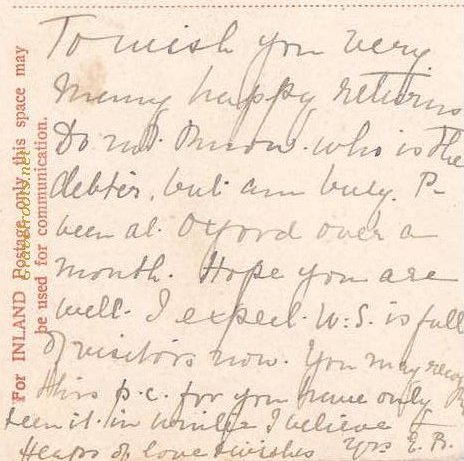 To wish you very
Many happy returns
Do not know who is the
debter, but am busy. P-
been at Oxford over a
month. Hope you are
well. I expect W.S. is full
of visitors now. You may
this p.c. for you have only
seen it in winter I believe
Heaps of love & wishes Yrs E.B.
For INLAND Postage only this space may
be used for communication.